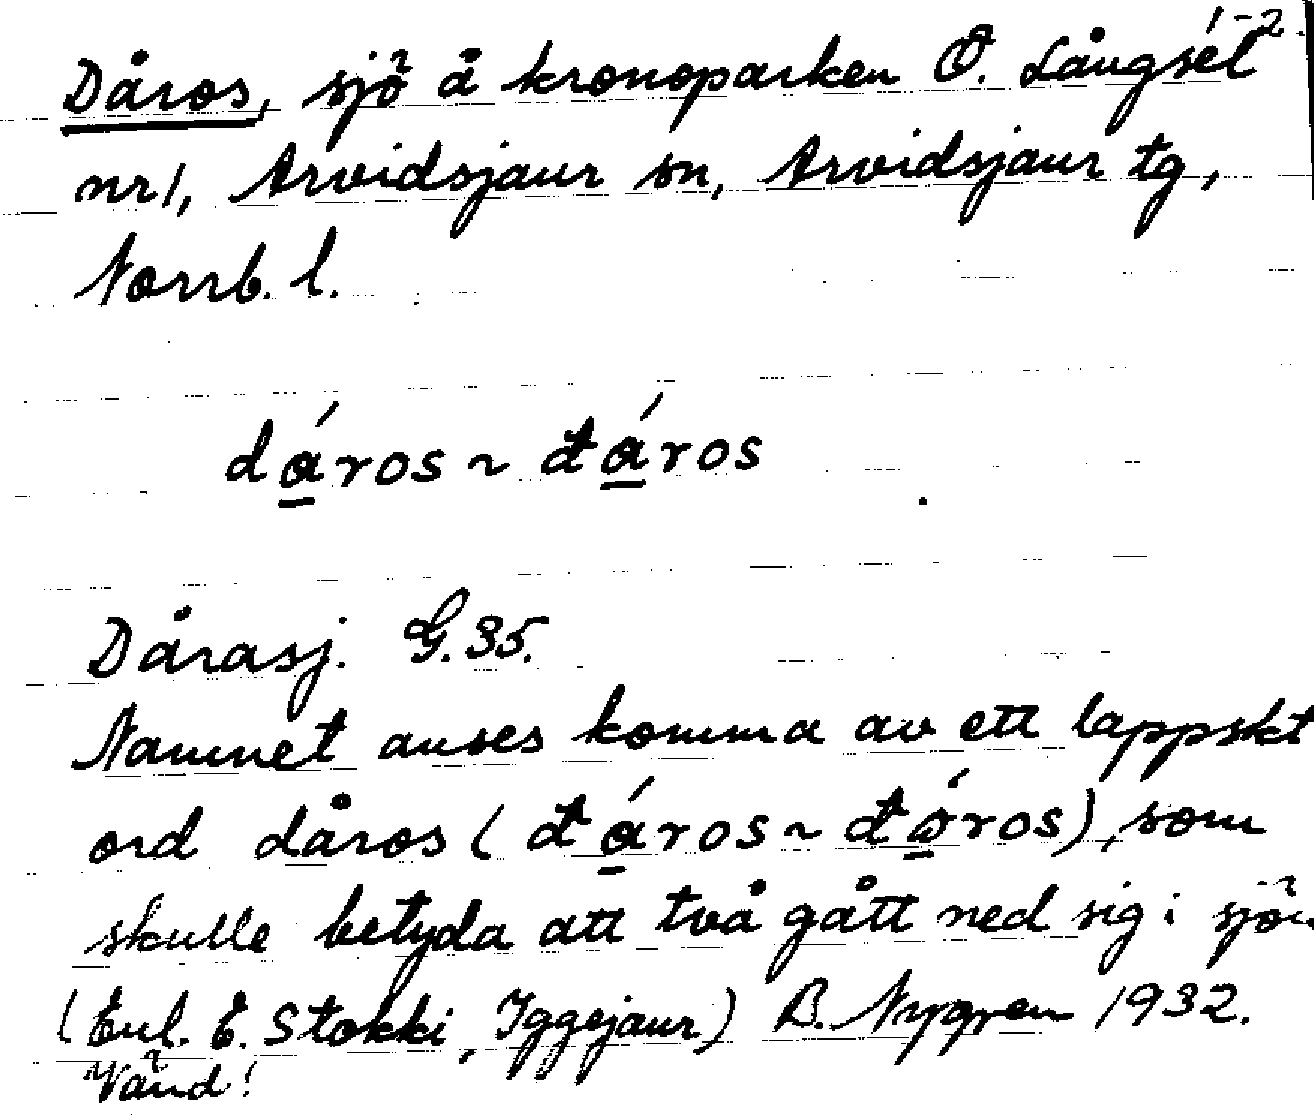 1-2.
Dåros, sjö å kronoparken Ö. Långsel
nr 1, Arvidsjaur sn, Arvidsjaur tg,
Norrb. l.
dá̱ros ~ đá̱ros
Dårasj. G.35.
Namnet anses komma av ett lappskt
ord dåros (đá̱ros ~ đó̱ros), som
skulle betyda att två gått ned sig i sjön
(Enl. E. Stokki, Iggejaur) B. Nygren 1932.
Vänd!